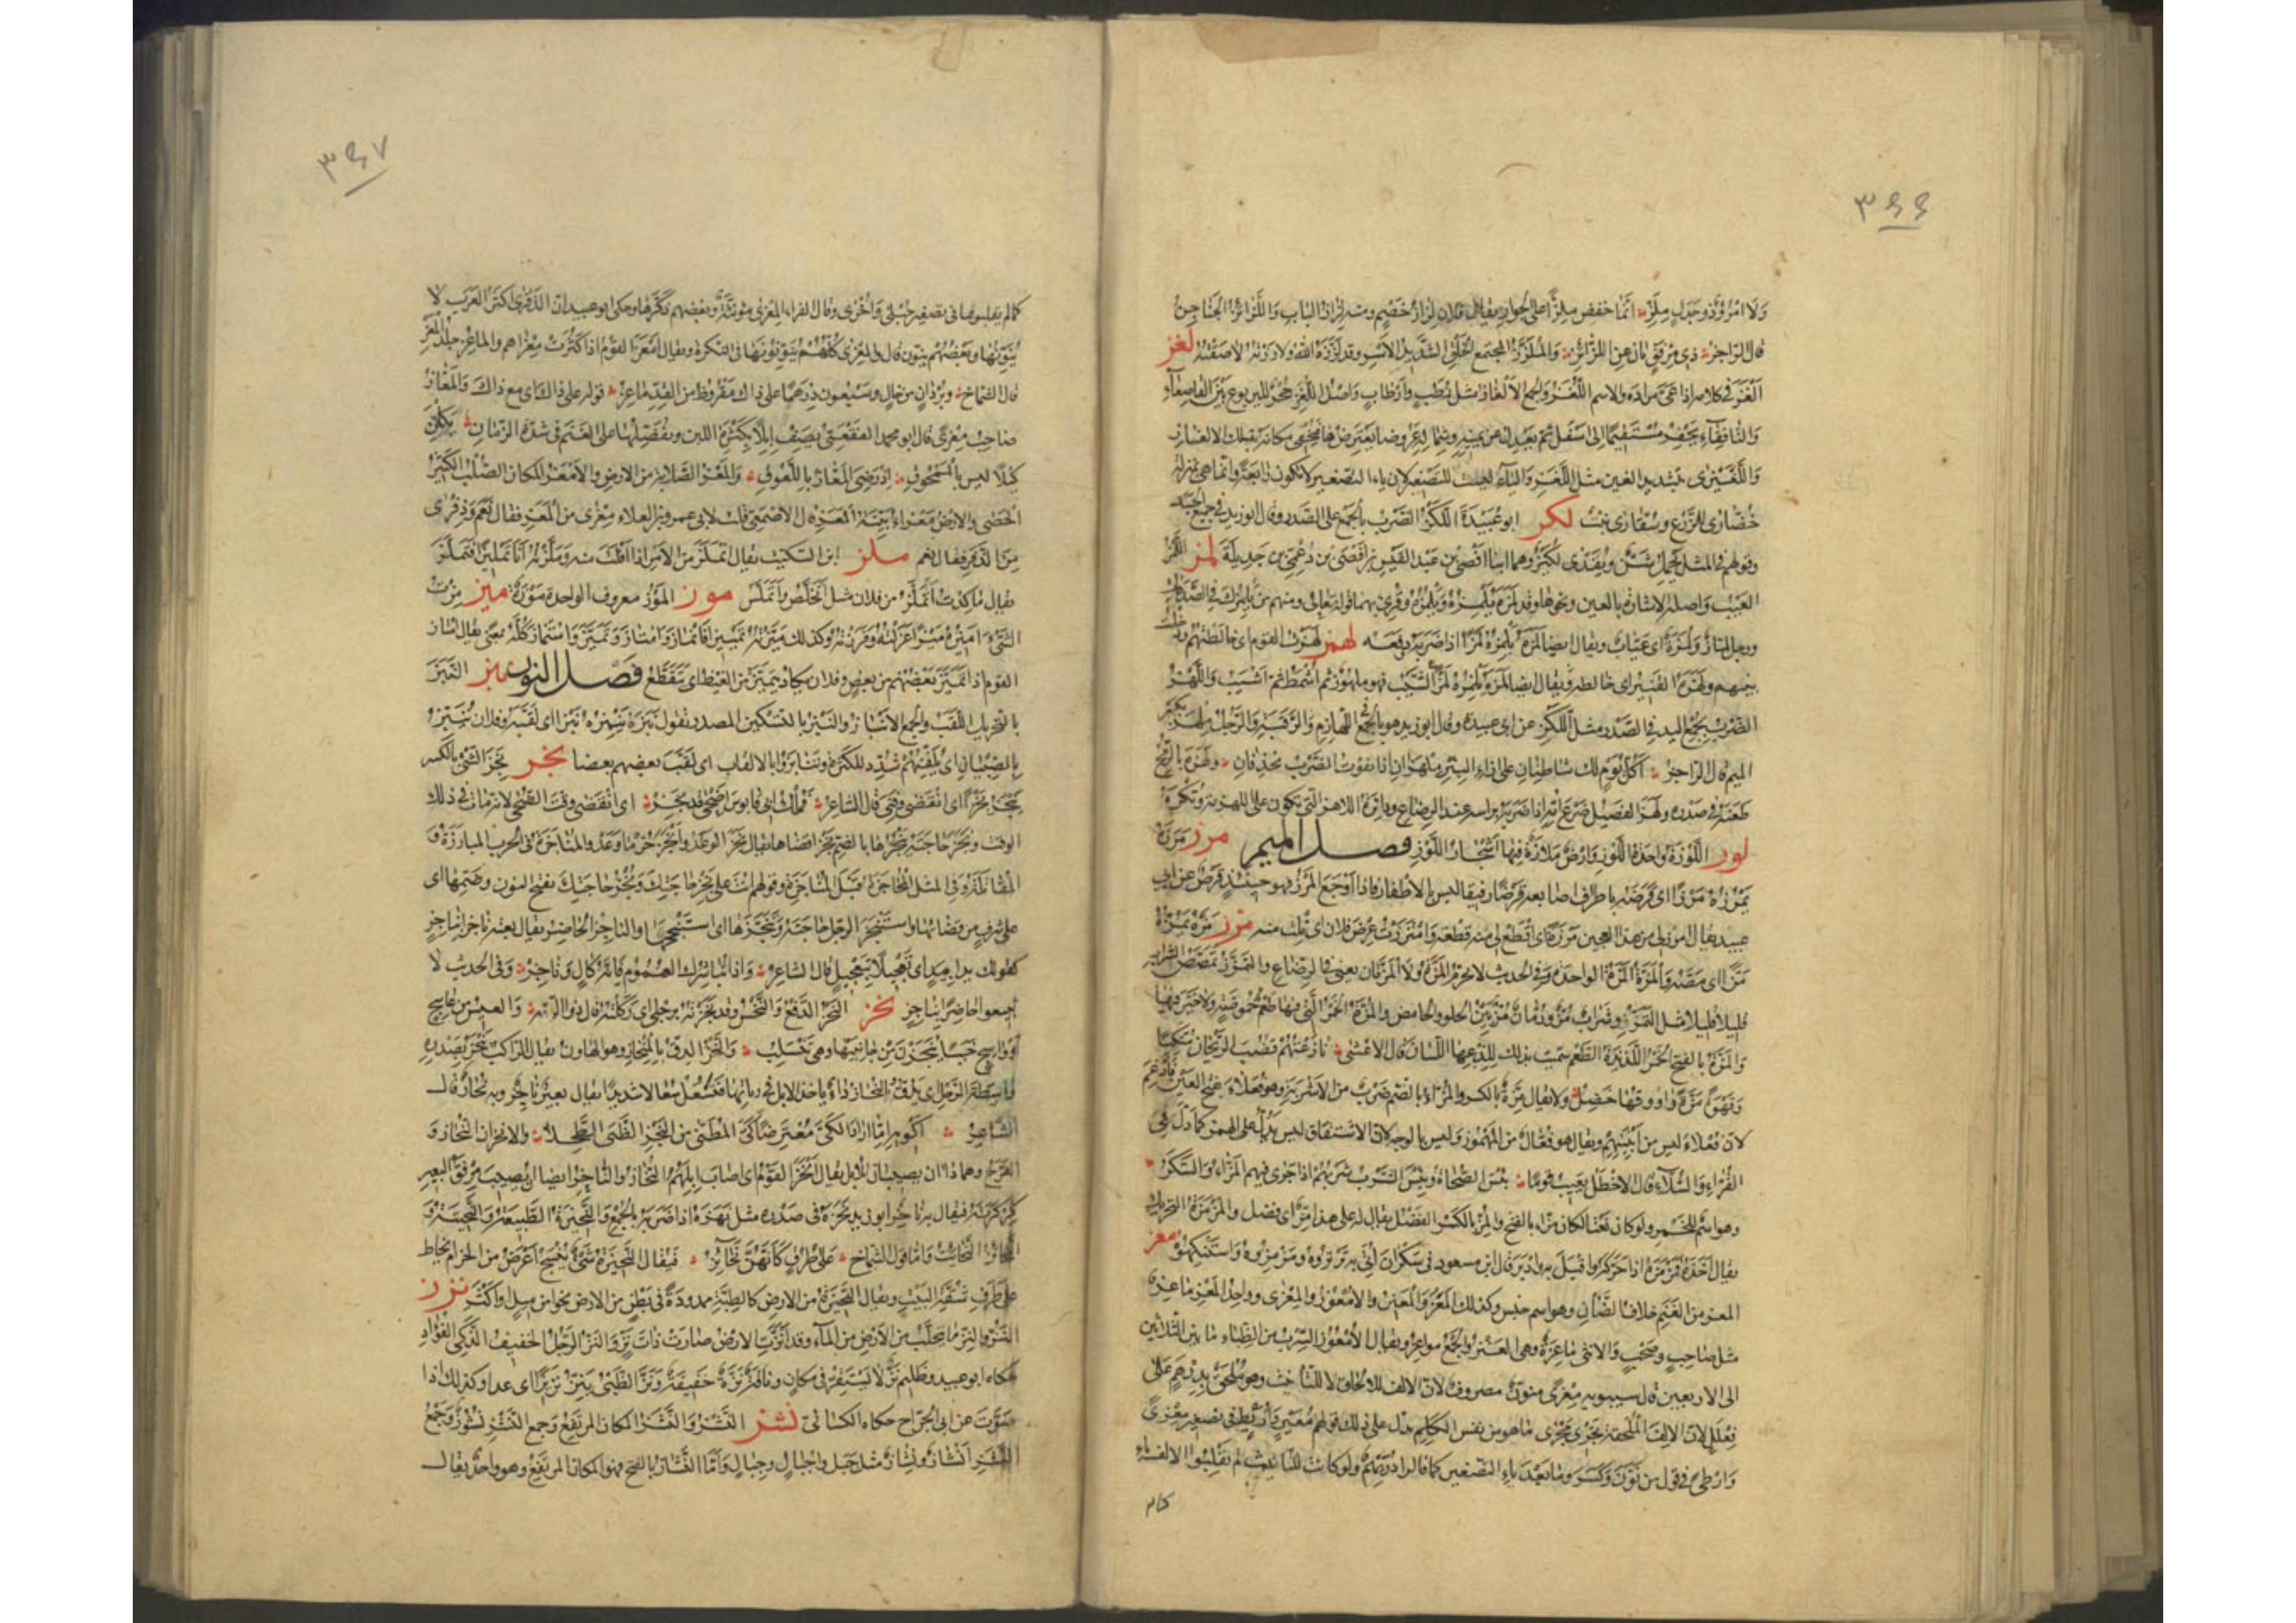 ٣٤٤
ولا امرؤ ذو جدل ملز انما خفض ملز على الجوار ويقال فلان لزاز خصم ومنه لزاز الباب واللزائز الجناجن
قال الراجز ذي مرفق بان عن اللزائز والملزز المجتمع الخلق الشديد الاسر وقد لززه الله ولاززته لاصقته لغز
الغز في كلامه اذا عمى مراده والاسم اللغز والجمع الالغاز مثل رطب وارطاب واصل اللغز جحر لليربوع بين القاصعاء
والنافقاء يحفر مستقيما الى اسفل ثم يعدل عن يمينه وشماله عروضا يعترضها فيخفى مكانه بتلك الالغاز
واللغيزى بتشديد الغين مثل اللغز والياء ليست للتصغير لان ياء التصغير لا تكون رابعة وانما هي بمنزلة
خضارى للزرع وشقارى نبت لكز ابو عبيدة اللكز الضرب بالجمع على الصدر وقال ابو زيد في جميع الجسد
وقولهم في المثل يحمل شن ويفدى لكيز وهما ابنا افصى بن عبد القيس بن افصى بن دعمي بن جديلة لمز اللمز
العيب واصله الاشارة بالعين ونحوها وقد لمزه يلمزه ويلمزه وقرئ بهما قوله تعالى ومنهم من يلمزك في الصدقات
ورجل لماز ولمزة اي عياب ويقال ايضا لمزه يلمزه لمزا اذا ضربه ودفعه لهز لهزت القوم اي خالطتهم ودخلت
بينهم ولهزه القتير اي خالطه ويقال ايضا لهزه الشيب فهو ملهوز ثم اشمط ثم اشيب واللهز
الضرب بجمع اليد في الصدر مثل اللكز عن ابي عبيدة وقال ابو زيد هو بالجمع في اللهازم والرقبة والرجل ملهز بكسر
الميم قال الراجز اكل يوم لك شاطنان على ازاء البئر ملهزان اذا يفوت الضرب يحذفان ولهزه بالرمح
طعنه في صدره ولهز الفصيل ضرع امه اذا ضربه براسه عند الرضاع ودائرة اللاهز التي تكون على اللهزمة وتكره
لوز اللوزة واحدة اللوز وارض ملازة فيها اشجار اللوز فصل الميم مرز مرزه
يمرزه مرزا اي قرصه باطراف اصابعه قرصا رفيقا ليس بالاظفار فاذا اوجع المرز فهو حينئذ قرص عن ابي
عبيد يقال امرز لي من هذا العجين مرزة اي اقطع لي منه قطعة وامترزت عرض فلان اي نلت منه مزز مزه يمزه
مزا اي مصه والمزة المرة الواحدة وفي الحديث لا تحرم المزة ولا المزتان يعني في الرضاع والتمزز تمصص الشراب
قليلا قليلا مثل التمزر وشراب مز ورمان مز بين الحلو والحامض والمزة الخمر التي فيها طعم حموضة ولا خير فيها
والمزة بالفتح الخمر اللذيذة الطعم سميت بذلك للذعها اللسان قال الاعشى نازعتهم قضب الريحان متكئا
وقهوة مزة راووقها خضل ولا يقال مزة بالكسر والمزاء بالضم ضرب من الاشربة وهو فعلاء بفتح العين فادغم
لان فعلاء ليس من ابنيتهم ويقال هو فعال من المهموز وليس بالوجه لان الاشتقاق ليس يدل على الهمز كما دل في
القراء والسلاء قال الاخطل يعيب قوما بئس الصحاة وبئس الشرب شربهم اذا جرى فيهم المزاء والسكر
وهو اسم للخمر ولو كان نعتا لكان مزاء بالفتح والمز بالكسر الفضل يقال له على هذا مز اي فضل والمزمزة التحريك
يقال اخذه فمزمزه اذا حركه واقبل به وادبر قال ابن مسعود في سكران اتي به ترتروه ومزمزوه واستنكهوه معز
المعز من الغنم خلاف الضان وهو اسم جنس وكذلك المعز والمعيز والامعوز والمعزى وواحد المعز ماعز
مثل صاحب وصحب والانثى ماعزة وهي العنز والجمع مواعز ويقال الامعوز السرب من الظباء ما بين الثلاثين
الى الاربعين قال سيبويه معزى منون مصروف لان الالف للالحاق لا للتانيث وهو ملحق بدرهم على
فعلل لان الالف الملحقة تجري مجرى ما هو من نفس الكلم يدل على ذلك قولهم معيز واريط في تصغير معزى
وارطى في قول من نون وكسروا ما بعد ياء التصغير كما قالوا دريهم ولو كانت للتانيث لم يقلبوا الالف ياء
كما لم
٣٤٧
كما لم يقلبوها في تصغير حبلى واخرى وقال الفراء المعزى مؤنثة وبعضهم ذكرها وحكى ابو عبيد ان الذفرى اكثر العرب لا
ينونها وبعضهم ينون قال والمعزى كلهم ينونونها في النكرة ويقال امعز القوم اذا كثرت معزاهم والماعز جلد المعز
قال الشماخ وبردان من خال وسبعون درهما على ذاك مقروظ من القد ماعز قوله على ذاك اي مع ذاك والمعاز
صاحب معزى قال ابو محمد الفقعسي يصف ابلا بكثرة اللبن ويفضلها على الغنم في شدة الزمان يكلن
كيلا ليس بالممحوق اذ رضي المعاز باللعوق والمعز الصلابة من الارض والامعز المكان الصلب الكثير
الحصى والارض معزاء بينة المعز قال الاصمعي قلت لابي عمرو بن العلاء معزى من المعز فقال نعم وذفرى
من الذفر فقال نعم ملز ابن السكيت يقال اتملز من الامر اذا افلت منه وملزته انا تمليزا فتملز
يقال ما كدت اتملز من فلان مثل اتخلص واتملس موز الموز معروف الواحدة موزة ميز مزت
الشيء اميزه ميزا عزلته وفرزته وكذلك ميزته تمييزا فانماز وامتاز وتميز واستماز كله بمعنى يقال امتاز
القوم اذا تميز بعضهم من بعض وفلان يكاد يتميز من الغيظ اي يتقطع فصل النون نبز النبز
بالتحريك اللقب والجمع الانباز والنبز بالتسكين المصدر تقول نبزه ينبزه نبزا اي لقبه وفلان ينبز
بالصبيان اي يلقبهم شدد للكثرة وتنابزوا بالالقاب اي لقب بعضهم بعضا نجز نجز الشيء بالكسر
ينجز نجزا اي انقضى وفني قال الشاعر فملك ابي قابوس اضحى وقد نجز اي انقضى وقت الضحى لانه مات في ذلك
الوقت ونجز حاجته ينجزها بالضم نجزا قضاها يقال نجز الوعد وانجز حر ما وعد والمناجزة في الحرب المبارزة و
المقاتلة وفي المثل المحاجزة قبل المناجزة وقولهم انت على نجز حاجتك ونجز حاجتك بفتح النون وضمها اي
على شرف من قضائها واستنجز الرجل حاجته وتنجزها اي استنجحها والناجز الحاضر يقال بعته ناجزا بناجز
كقولك يدا بيد اي تعجيلا بتعجيل قال الشاعر واذا تباشرك الهموم فانه كال وناجز وفي الحديث لا
تبيعوا حاضرا بناجز نحز النحز الدفع والنخس وقد نحزته برجلي اي ركلته قال ذو الرمة والعيس من عاسج
او واسج خببا ينحزن من جانبيها وهي تنسلب والنحز الدق بالمنحاز وهو الهاون يقال الراكب ينحز بصدره
واسطة الرحل اي يدقه والنحاز داء ياخذ الابل في رئاتها فتسعل سعالا شديدا يقال بعير ناحز وبه نحاز قال
الشاعر اكويه اما اراد الكي معترضا كي المطني من النحز الطنى الطحلا والانحزان النحاز و
القرح وهما داءان يصيبان الابل يقال انحز القوم اي اصاب ابلهم النحاز والناحز ايضا ان يصيب مرفق البعير
كركرته فيقال به ناحز ابو زيد نحزه في صدره مثل نهزه اذا ضربه بالجمع والنحيزة الطبيعة والنحيتة و
النحائز النحائت واما قول الشماخ على طرق كانهن نحائز فيقال النحيزة شيء ينسج اعرض من الحزام يخاط
على طرف شقة البيت ويقال النحيزة من الارض كالطبة ممدودة في بطن من الارض نحوا من ميل او اكثر نزز
النز والنز ما يتحلب من الارض من الماء وقد انزت الارض صارت ذات نز والنز الرجل الخفيف الذكي الفؤاد
حكاه ابو عبيد وظليم نز لا يستقر في مكان وناقة نزة خفيفة ونز الظبي ينز نزيزا اي عدا وكذلك اذا
صوت عن ابي الجراح حكاه الكسائي نشز النشز والنشز المكان المرتفع وجمع النشز نشوز وجمع
النشز انشاز ونشاز مثل جبل واجبال وجبال واما النشاز بالفتح فهو المكان المرتفع وهو واحد يقال